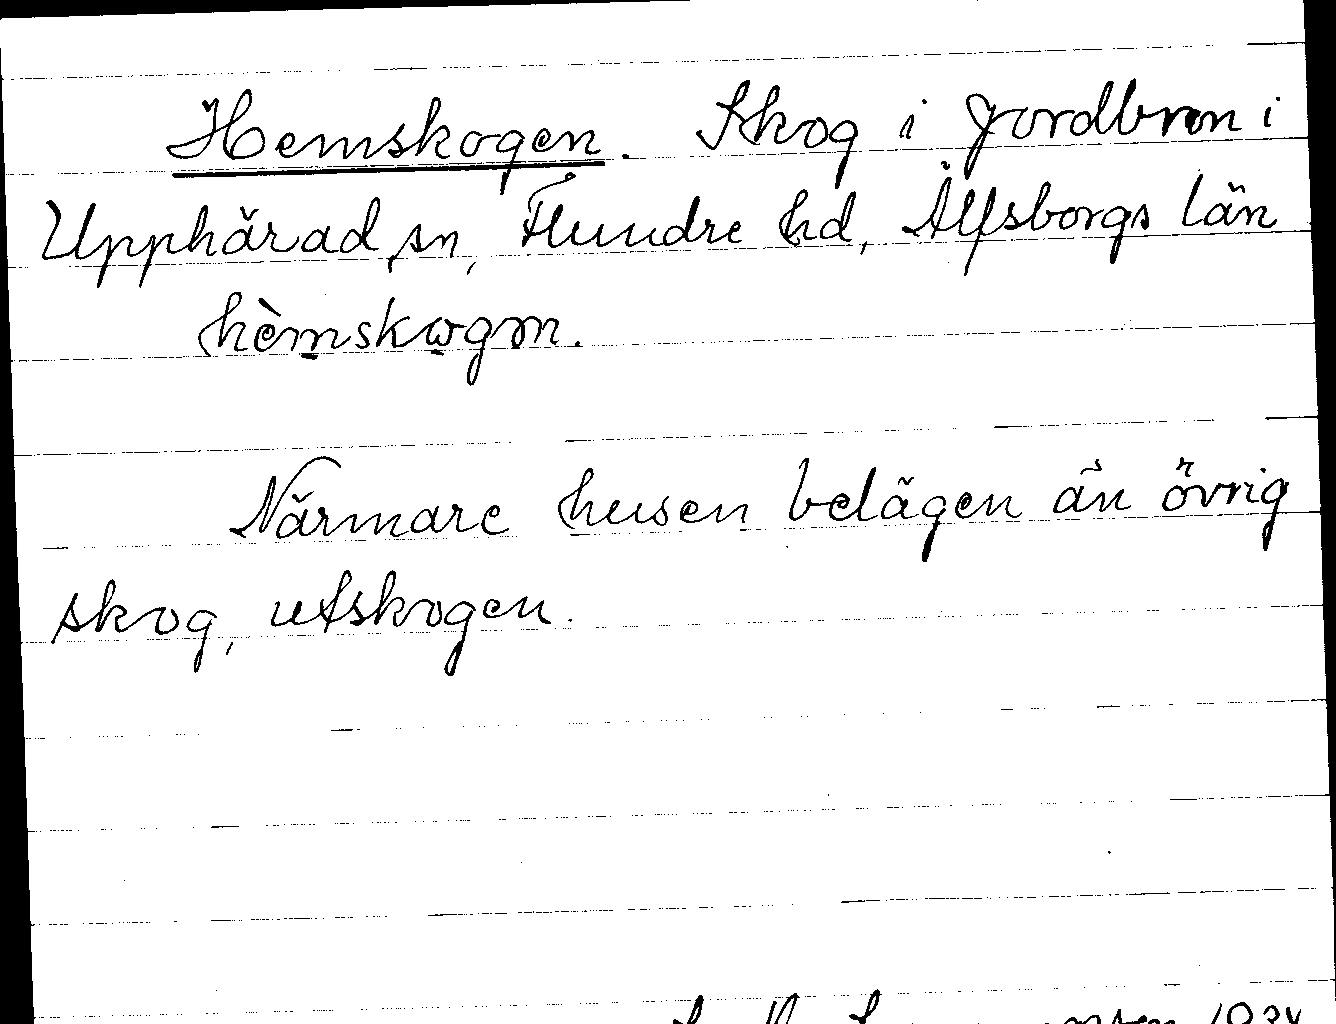 Hemskogen. Skog i Jordbron i
Upphärad sn, Flundre hd, Älfsborgs län
hèmskogm.
Närmare husen belägen än övrig
skog, utskogen.